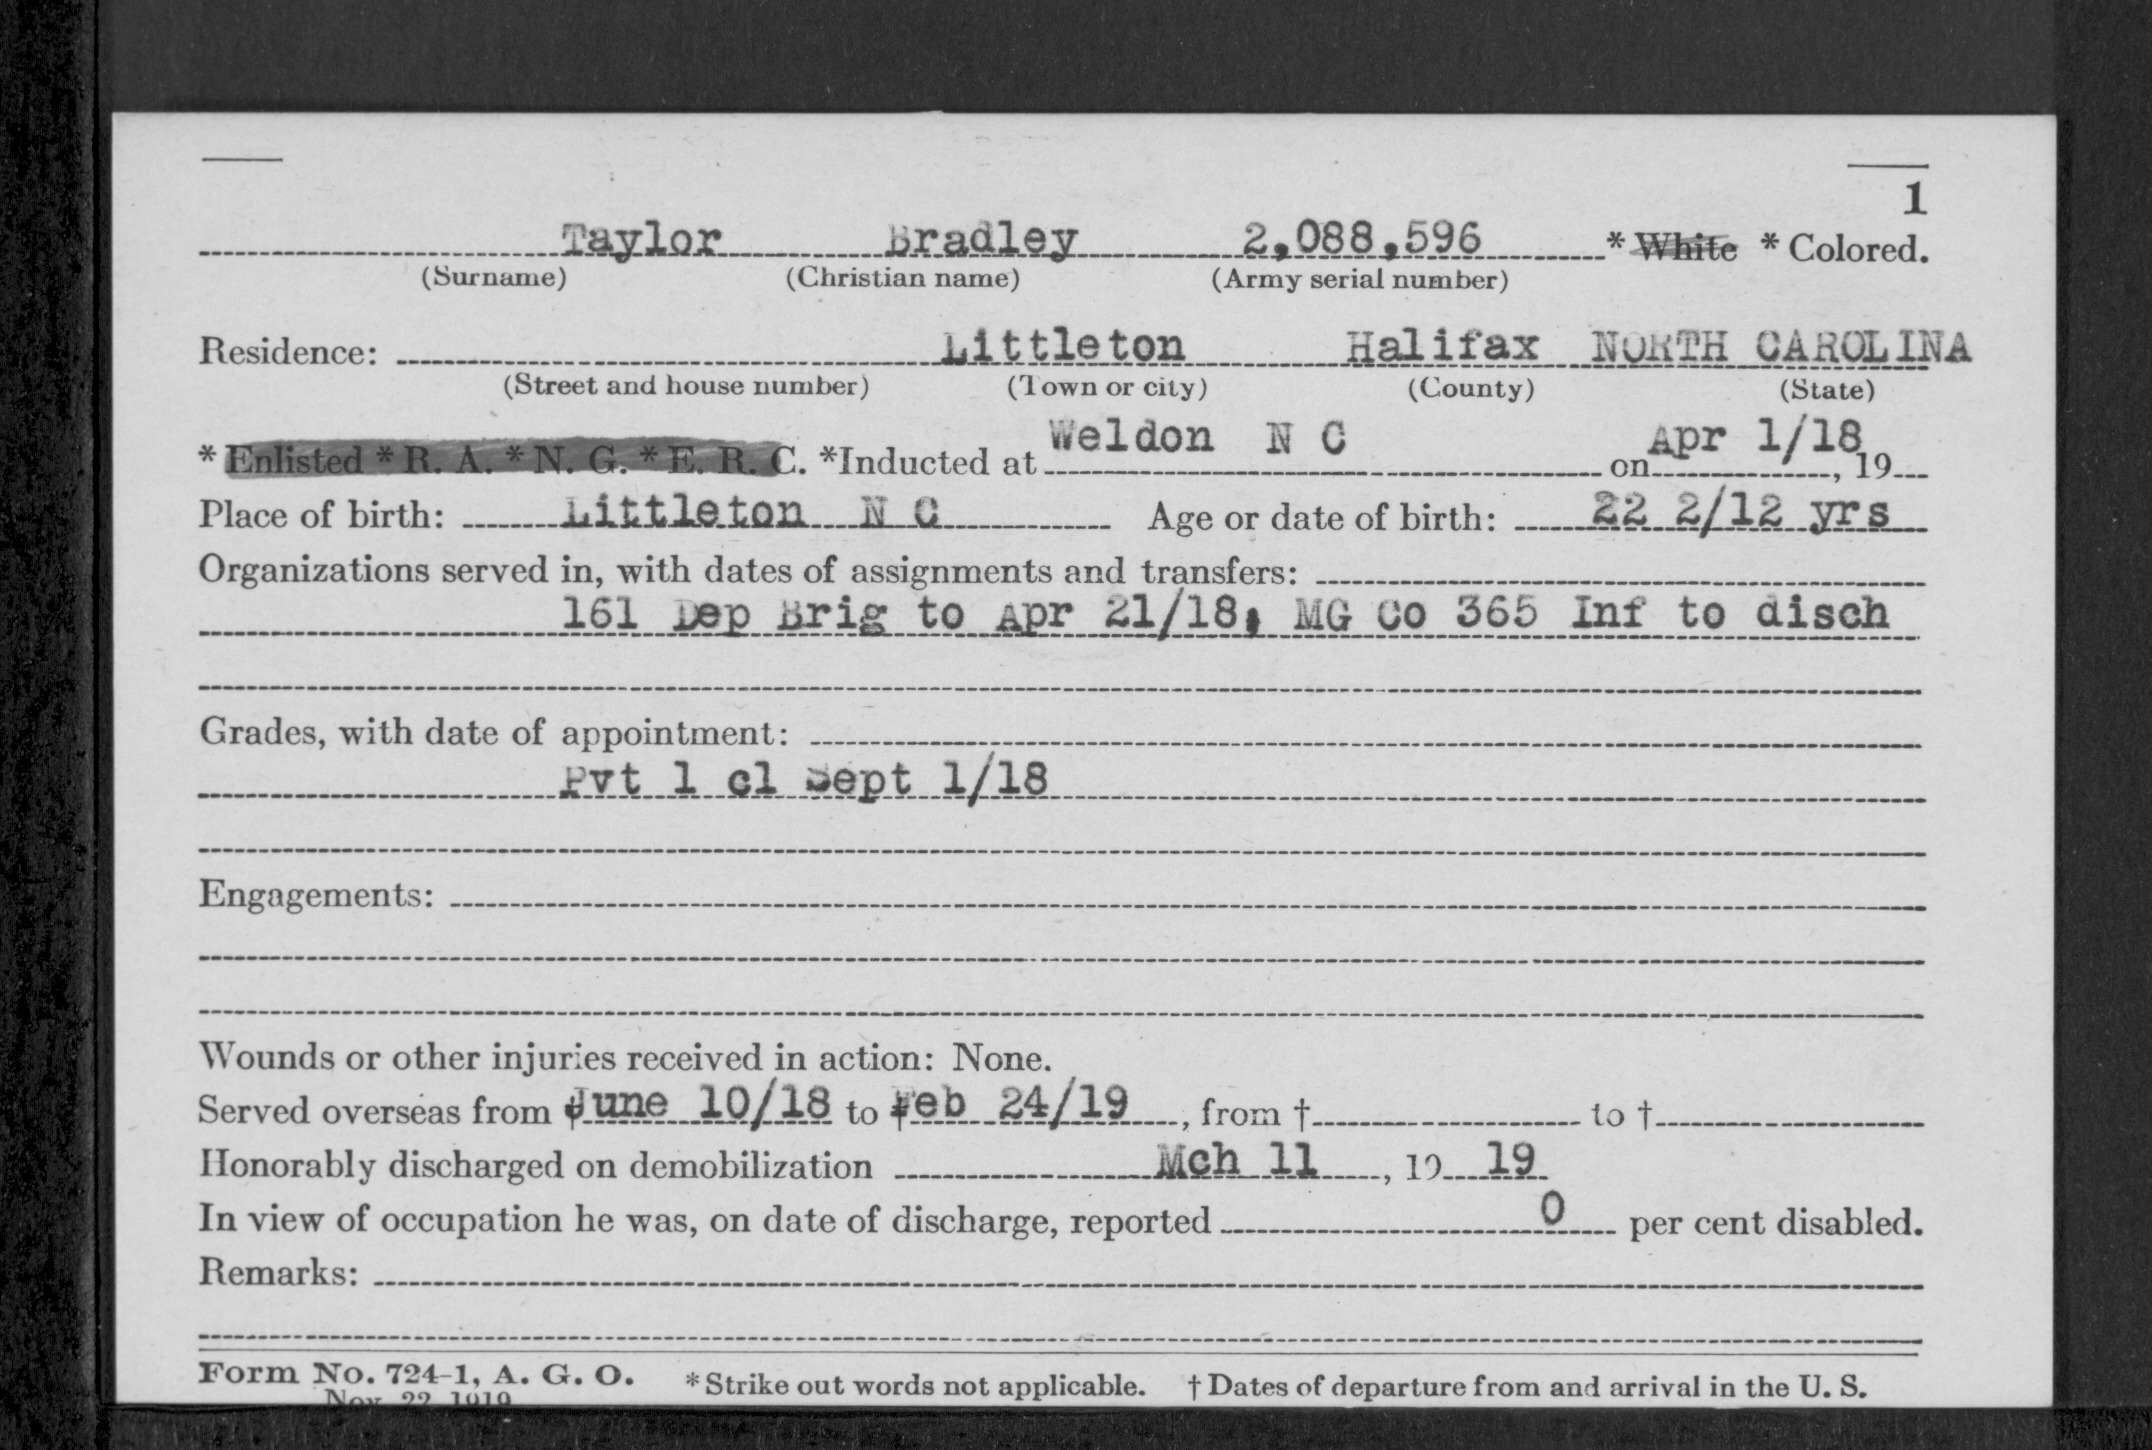 1
Taylor Bradley 2,088,596 * White * Colored.
(Surname) (Christian name) (Army serial number)
Residence: Littleton Halifax NORTH CAROLINA
(Street and house number) (Town or city) (County) (State)
* Enlisted * R. A. * N. G. * E. R. C. *Inducted at Weldon N C on Apr 1/18, 19
Place of birth: Littleton N C Age or date of birth: 22 2/12 yrs
Organizations served in, with dates of assignments and transfers:
161 Dep Brig to Apr 21/18; MG Co 365 Inf to disch
Grades, with date of appointment:
Pvt 1 cl Sept 1/18
Engagements:
Wounds or other injuries received in action: None.
Served overseas from †June 10/18 to †Feb 24/19, from † to †
Honorably discharged on demobilization Mch 11, 19 19
In view of occupation he was, on date of discharge, reported 0 per cent disabled.
Remarks:
Form No. 724-1, A. G. O. * Strike out words not applicable. † Dates of departure from and arrival in the U. S.
Nov. 22, 1919